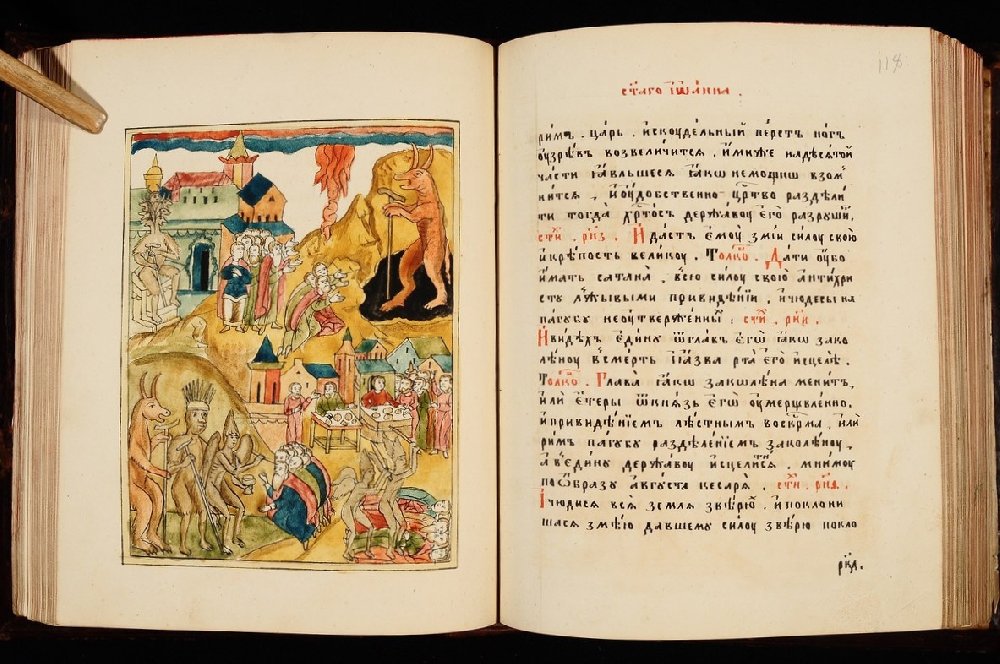 118
ст҃аго іѡа́нна .
ри́мъ . ца́рь . и҆скоуде́льный пе́рстъ но́гъ
оу҆зрѣ́въ возвели́чится . и҆ми́же надеся́той
ча́сти ꙗ҆́вльшеся ꙗ҆́кѡ немо́щнїи взо́м
нится , и҆ оу҆до́бственно ца́рство раздѣли́
ти тогда̀ держа́воу е҆гѡ̀ разрꙋши́ .
ст҃и́ . рк҃з . И҆ да́стъ е҆моу̀ змі́й си́лоу свою̀
и҆ крѣ́пость вели́коу . Толко́ . Да́ти оу҆́бо
и҆́мать сатана̀ . всю̀ си́лоу свою̀ а҆нтихри́
стоу лжи́выми привидѣ́нїи , и҆ чюдесы̀ на
па́гоубу неоутверже́нный . ст҃и́ . рк҃и .
И҆ ви́дѣхъ е҆ди́ну ѿ гла́въ е҆гѡ̀ ꙗ҆́кѡ зако
ле́ноу в сме́рть и҆ ꙗ҆́зва рта̀ е҆гѡ̀ и҆сцелѣ̀ .
Толко́ . Глава̀ ꙗ҆́кѡ закла́на мени́тъ ,
и҆лѝ е҆́теры ѿ кнѧ́зь е҆гѡ̀ оу҆мерщвле́нно ,
и҆ привидѣ́нїемъ ле́стнымъ воскр҃ша , и҆лѝ
ри́мъ па́гоубу раздѣле́нїемъ заколе́ноу ,
а҆ в е҆ди́ну держа́воу и҆сцели́вся . мни́мою
по ѡ҆́бразу а҆́вгуста ке́саря . ст҃и́ . рк҃д .
І҆ чюди́ся вся̀ земля̀ звѣ́рю , и҆ поклони́
шася змѣ́ю да́вшему си́лоу звѣ́рю покло
рк҃д .